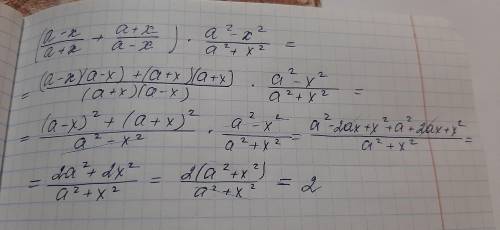 (a-x/a+x + a+x/a-x) · a²-x²/a²+x² =
= (a-x)(a-x)+(a+x)(a+x)/(a+x)(a-x) · a²-x²/a²+x² =
= (a-x)²+(a+x)²/a²-x² · a²-x²/a²+x² = a²-2ax+x²+a²+2ax+x²/a²+x² =
= 2a²+2x²/a²+x² = 2(a²+x²)/a²+x² = 2